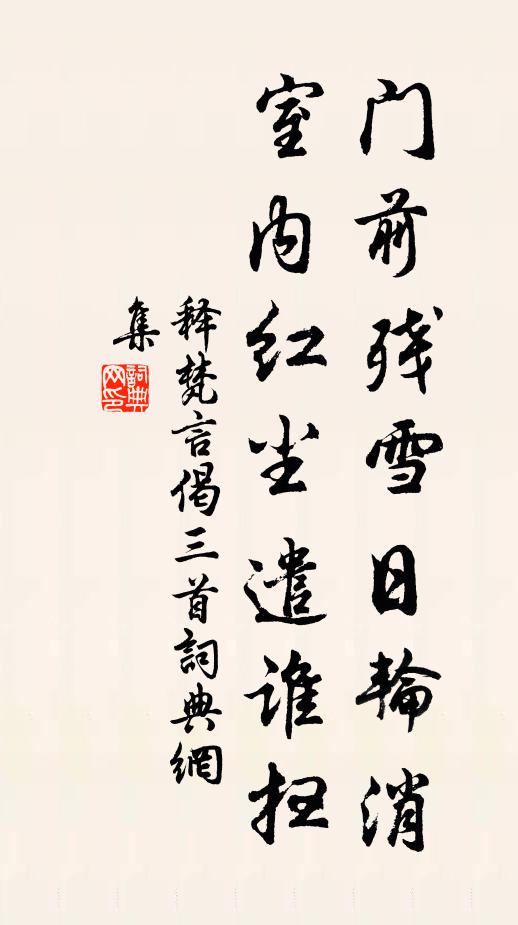 门前残雪日輪消
室内红尘遣谁扫
释梵言偈三首詞典網
集
詞典
网印